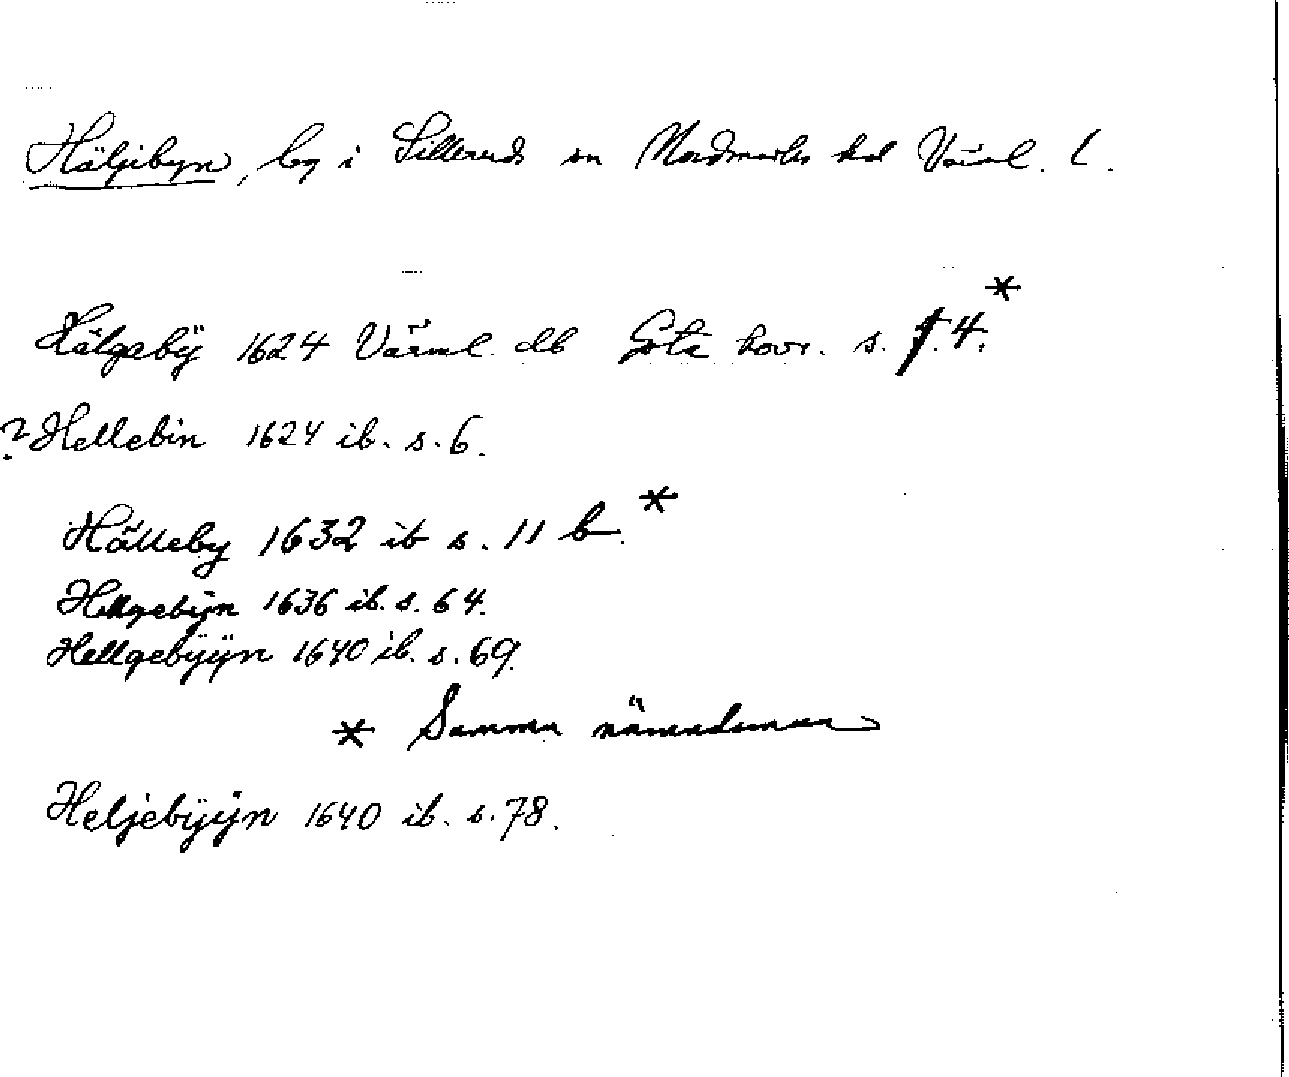 Häljebyn, by i Silleruds sn Nordmarks hd Värml. l.
Hälgebÿ 1624 Värml. db Göta hovr. s. 4.*
? Hellebin 1624 ib. s. 6.
Hälleby 1632 ib s. 11 b.*
Hellgebÿn 1636 ib. s. 64.
Hellgebÿÿn 1640 ib. s. 69.
* Samma nämndeman
Heljebÿÿn 1640 ib. s. 78.